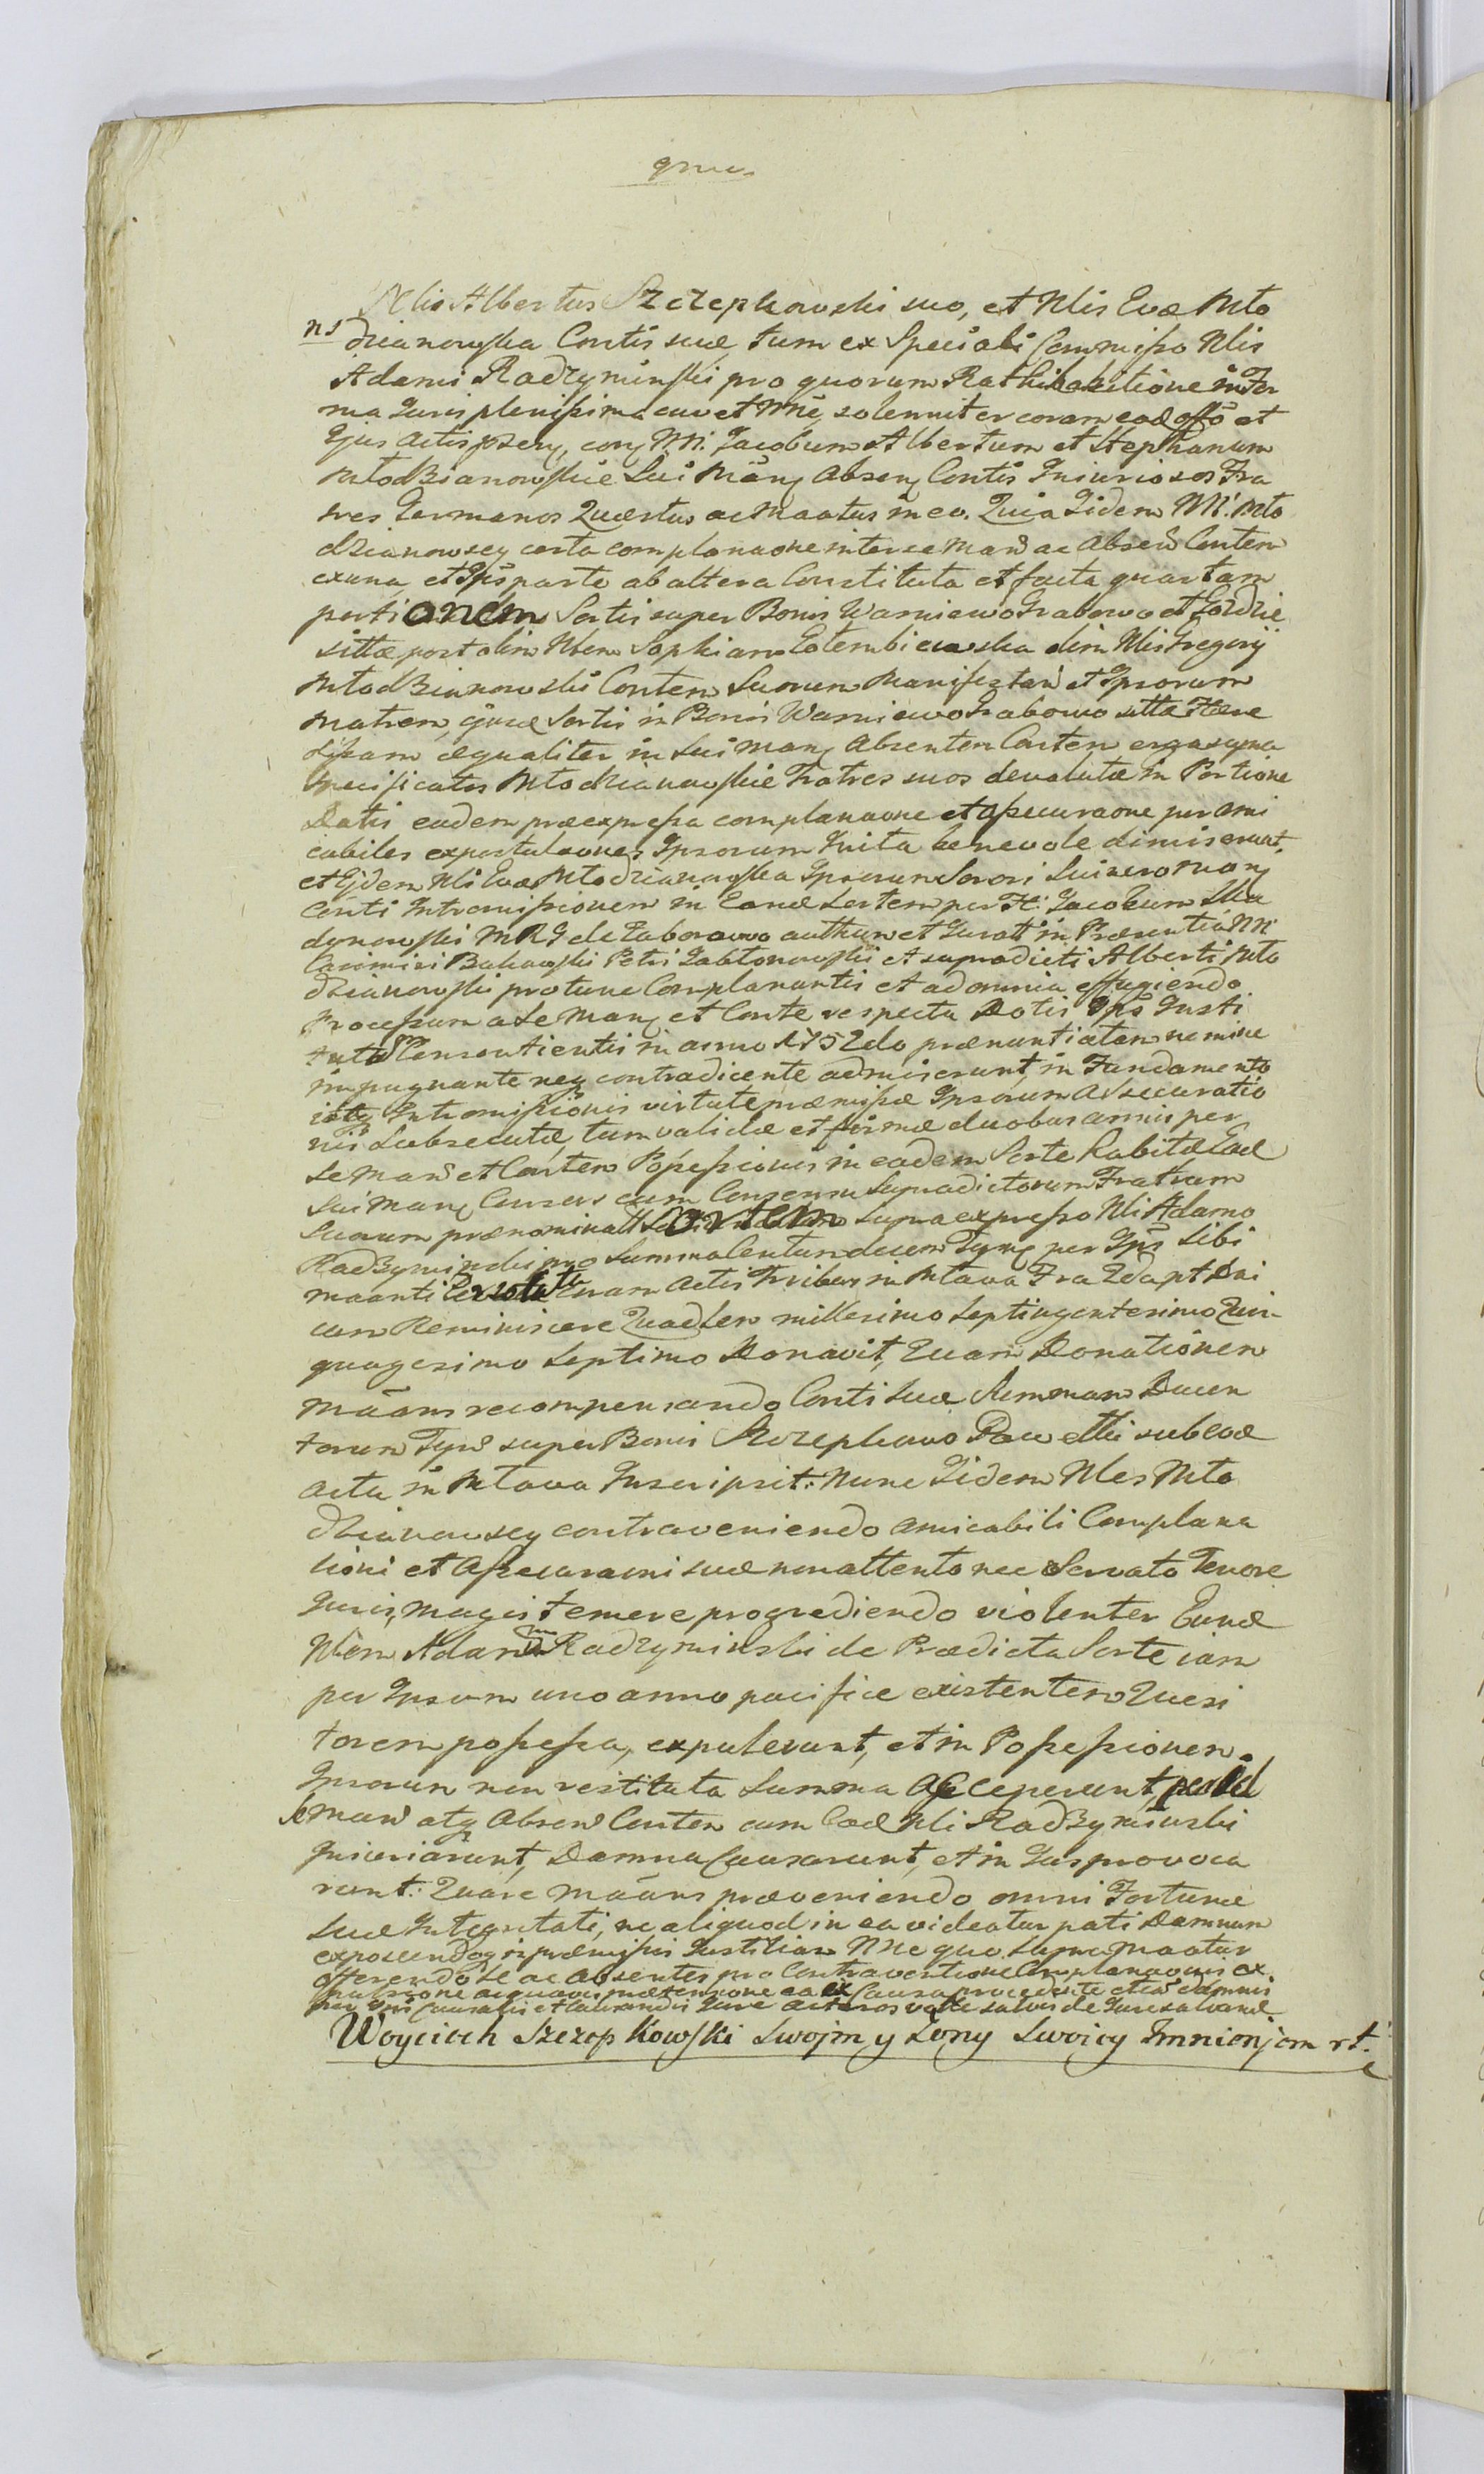 Nlis Albertus Szczepkowski suo, et Nlis Evæ Mło
ns dzianowska Contis suæ, tum ex Speciali Commisso Nlis
Adami Radzyminski pro quorum Rathihabitione in For
ma Juris plenissima cavet Nne, solenniter coram eod offo et
Ejus actis psens, conq NN. Jacobum Albertum et Stephanum
Młodzianowskie Sui Mānq Absenq Contis Iniuriosos Fra
tres Germanos Quæstus ac Maatus in eo. Quia Iidem NN. Mło
dzianowscy certa complanaone inter se Man ac Absen Conten
ex una, et Ips parte ab altera Constituta et facta quartam
portionem Sortis super Bonis Warniewo Grabowo et Gozdzie
sittæ post olim Nbem Sophiam Golembiewska olim Nlis Gregorij
Młodzianowski Conten Suorum Manifestan et Ipsorum
Matrem, ejusd Sortis in Bonis Warniewo Grabowo sittæ Hære
dissam æqualiter in Sui Manq Absentem Conten
specificatos Młodzianowskie Fratres suos devolutæ in Portione
Datis eadem præexpressa complanaone et assecuraone per ami
cabiles expostulaones Ipsorum Inita benevole dimiserunt
et Ejdem Nli Evæ Młodzianowska Ipsorum Sorori Sui vero Manq
Conti Intromissionem in Eand Sortem per H: Jacobum Ma
dynowski MRG de Zaborowo authum et Jurati in Præsentia NN
Casimiri Bukowski Petri Jabłonowski et supradicti Alberti Mło
dzianowski pro tunc Complanantis et ad omnia effugiendo
Processum a se Manq et Conte respectu Dotis Ips Justi
tuto Consentientis in anno 1752do prænuntiatam nemine
impugnante neq contradicente admiserunt, in Fundamento
istq Intromissionis virtute præmissæ Ipsorum Assecuratio
nis Subsecutæ, tum validæ et firmæ duobus annis per
se Man et Conten Possessionis in eadem Sorte habitæ Ead
Sui Manq Consors cum Consensu Supradictorum Fratrum
Suorum prænominatt Sortem Supra expresso Nli Adamo
Radzyminski pro Summa Centum decem Tynq per Ips Sibi
maanti Persoluta coram Actis Tribus in Mława Fra 2da pt Dni
cam Reminiscere Quadlem millesimo Septingentesimo Quin-
quagesimo Septimo Donavit, Quam Donationem
māans recompensando Conti Suæ Summam Ducen
torum Tyn super Bonis Szczepkowo Pawełki sub eod
actu in Mława Inscripsit: Nunc Iidem Nles Mło
dzianowscy contraveniendo amicabili Complana
tioni et Assecuraoni suæ non attento nec Servato Tenore
Juris, magis temere progrediendo violenter Eund
Nlem Adamum Radzyminski de Prædicta Sorte iam
per Ipsum uno anno pacifice existentem Quesi
torem possessa, expulerunt, et in Possessionem
Ipsorum non restituta Summa Acceperunt, per Id
se Man atq Absen Conten cum Eod Nli Radzyminski
Iniuriarunt, Damna Causarunt, et in Jus provoca
runt: Quare māans præveniendo omni Fortunæ
Suæ Integritati, ne aliquod in ea videatur pati Damnum
exposcendoq in præmissis Justitiam Nne quo supra Maatur
offerendo se ac absentes pro Contraventione Complanaonis ex
pulsione prætensione ea ex Causa procedente etiam damnis
per Ips Causatis et Causandis Jure acturos velle salvis de Jure salvand
Woyciech Szczepkowski Swojm y Zony Swoiey Jmnienjem rt.